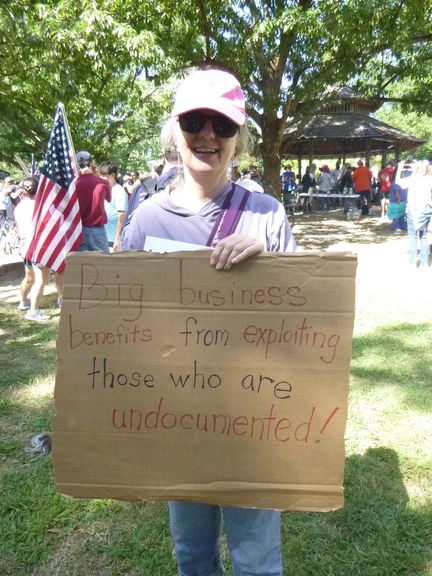 Big business
benefits from exploiting
those who are
undocumented!